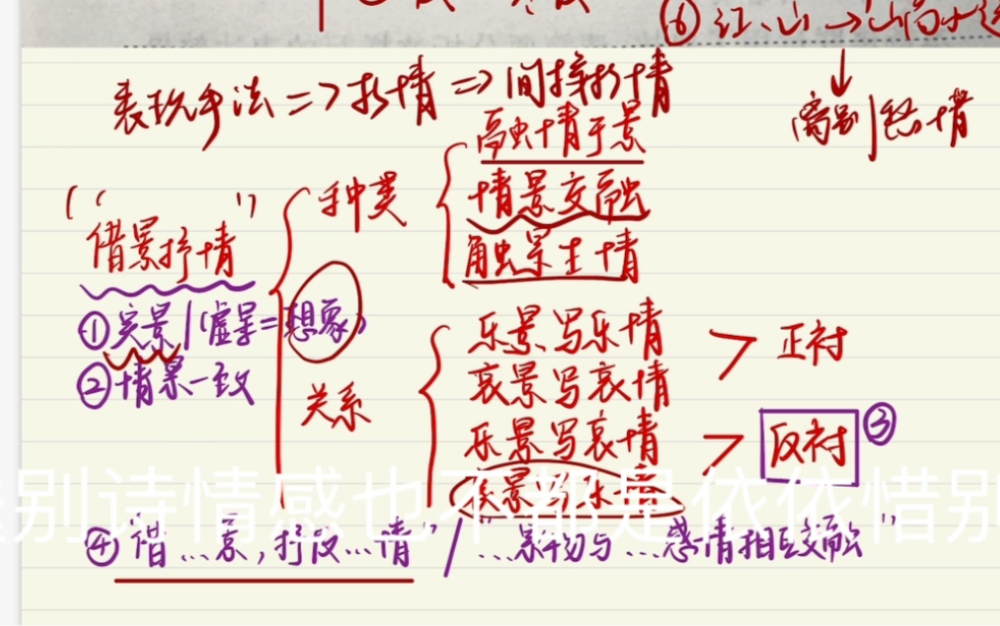 ⑥ 江、山 → 山高水
离别|惜情
表现手法 => 抒情 => 间接抒情
寓情于景
种类
情景交融
“借景抒情”
触景生情
①实景/(虚景=想象)
乐景写乐情
正衬
②情景一致
哀景写哀情
关系
乐景写哀情
反衬 ③
哀景写乐情
别诗情感也不都是依依惜别
④“借…景,抒发…情” / “…景物与…感情相互交融”